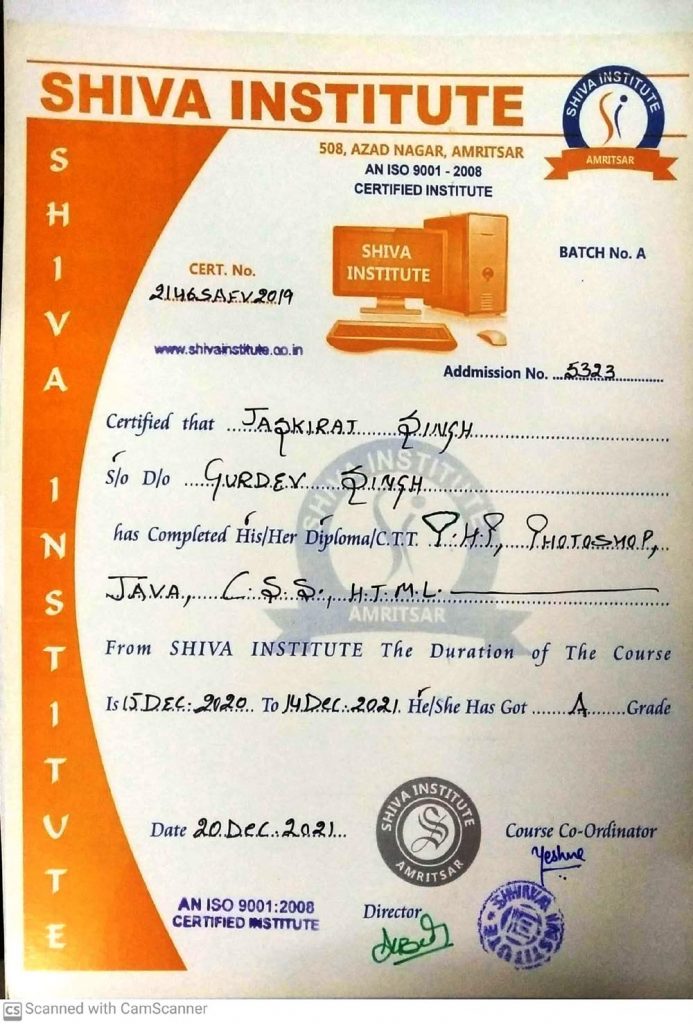 SHIVA INSTITUTE
SHIVA INSTITUTE
AMRITSAR
508, AZAD NAGAR, AMRITSAR
AN ISO 9001 - 2008
CERTIFIED INSTITUTE
SHIVA INSTITUTE
SHIVA
INSTITUTE
BATCH No. A
CERT. No.
2146SAFV2019
www.shivainstitute.co.in
Addmission No. ...5323
Certified that Jaskirat Singh
S/o D/o Gurdev Singh
has Completed His/Her Diploma/C.T.T. P.H.P, Photoshop,
Java, C.S.S., H.T.M.L.
SHIVA INSTITUTE
AMRITSAR
From SHIVA INSTITUTE The Duration of The Course
Is 15 Dec. 2020 To 14 Dec. 2021 He/She Has Got ....... A ....... Grade
SHIVA INSTITUTE
AMRITSAR
Date 20 Dec. 2021...
Course Co-Ordinator
Yeshne
AN ISO 9001:2008
CERTIFIED INSTITUTE
Director
SHIVA INSTITUTE
CS Scanned with CamScanner